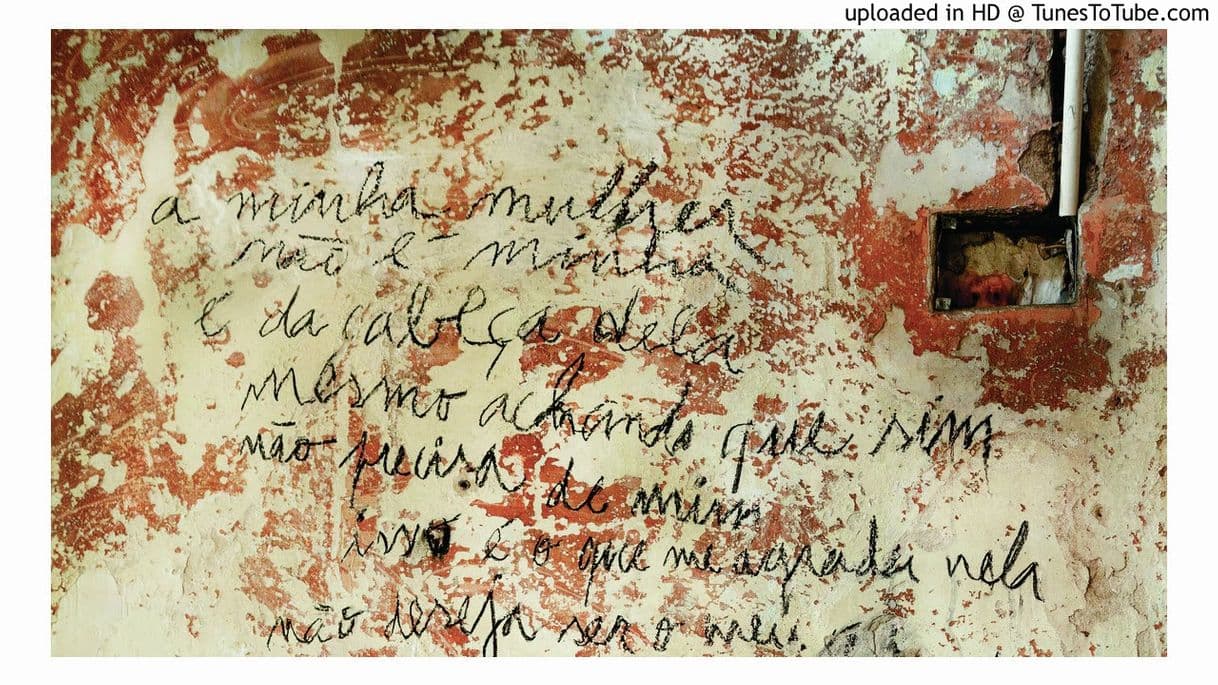 uploaded in HD @ TunesToTube.com
a minha mulher
não é minha
é da cabeça dela
mesmo achando que sim
não precisa de mim
isso é o que me agrada nela
não deseja ser o meu.